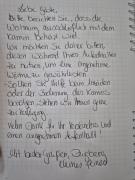 Liebe Gäste,
Bitte beachten Sie, dass die
Wohnung ausschließlich mit dem
Kamin beheizt wird.
Wir möchten Sie daher bitten,
diesen während Ihres Aufenthaltes
zu nutzen, um eine angenehme
Wärme zu gewährleisten.
Sollten Sie Hilfe beim Anzünden
oder der Bedienung des Kamins
benötigen, stehen wir Ihnen gerne
zur Verfügung.
Vielen Dank für Ihr Verständnis und
einen angenehmen Aufenthalt!
Mit freundlichen Grüßen,